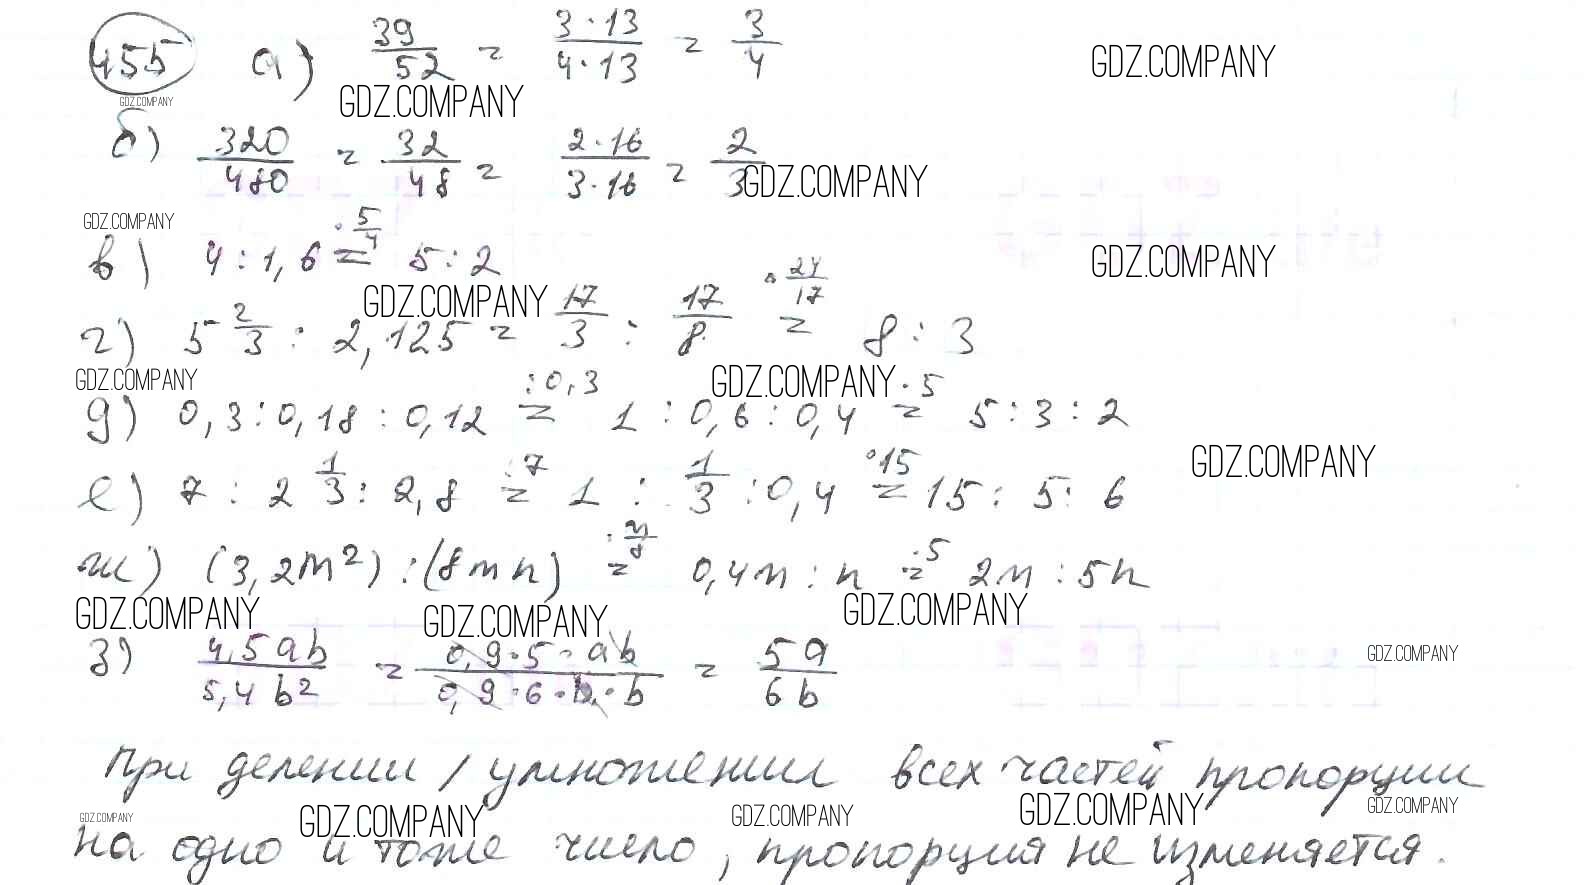 455 а) 39/52 = 3·13/4·13 = 3/4 GDZ.COMPANY
GDZ.COMPANY GDZ.COMPANY
б) 320/480 = 32/48 = 2·16/3·16 = 2/3 GDZ.COMPANY
GDZ.COMPANY
в) 4 : 1,6 =^{·5/4} 5 : 2 GDZ.COMPANY
GDZ.COMPANY
г) 5 2/3 : 2,125 = 17/3 : 17/8 =^{·24/17} 8 : 3
GDZ.COMPANY GDZ.COMPANY
д) 0,3 : 0,18 : 0,12 =^{:0,3} 1 : 0,6 : 0,4 =^{·5} 5 : 3 : 2
GDZ.COMPANY
е) 7 : 2 1/3 : 2,8 =^{:7} 1 : 1/3 : 0,4 =^{·15} 15 : 5 : 6
ж) (3,2m²) : (8mn) 0,4m : n =^{·5} 2m : 5n
GDZ.COMPANY GDZ.COMPANY GDZ.COMPANY
з) 4,5ab/5,4b² = 0,9·5·ab/0,9·6·b·b = 5a/6b GDZ.COMPANY
при делении / умножении всех частей пропорции
GDZ.COMPANY GDZ.COMPANY GDZ.COMPANY GDZ.COMPANY GDZ.COMPANY
на одно и тоже число, пропорция не изменяется.